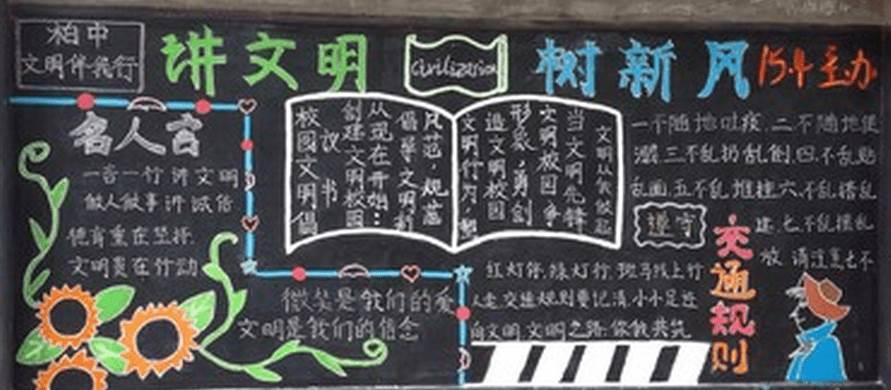 柏中
文明伴我行
讲文明
Civilization
树新风
15.4主办
名人言
一言一行讲文明
做人做事讲诚信
德育重在坚持
文明贵在行动
校园文明倡
议书
创建文明校园
从现在开始:
倡导文明新
风范,规范
文明行为,塑
造文明校园
形象,勇创
文明校园,争
当文明先锋
文明从我做起
一不随地吐痰.二不随地便
溺.三不乱扔乱倒.四.不乱贴
乱画.五不乱堆挂.六.不乱搭乱
建.七.不乱摆乱
放 请注意七不
遵守
交通规则
红灯停.绿灯行.斑马线上行
人走.交通规则要记清.小小足迹
文明.文明之路.你我共筑
微笑是我们的爱
文明是我们的信念